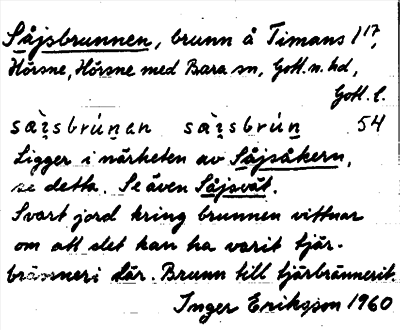 Såjsbrunnen, brunn å Timans 1¹⁷,
Hörsne, Hörsne med Bara sn, Gotl. n. hd,
Gotl. l.
sàɪsbrúnan sàɪsbrún 54
Ligger i närheten av Såjsåkern,
se detta. Se även Såjsvät.
Svart jord kring brunnen vittnar
om att det kan ha varit tjär-
bränneri där. Brunn till tjärbränneriet.
Inger Eriksson 1960